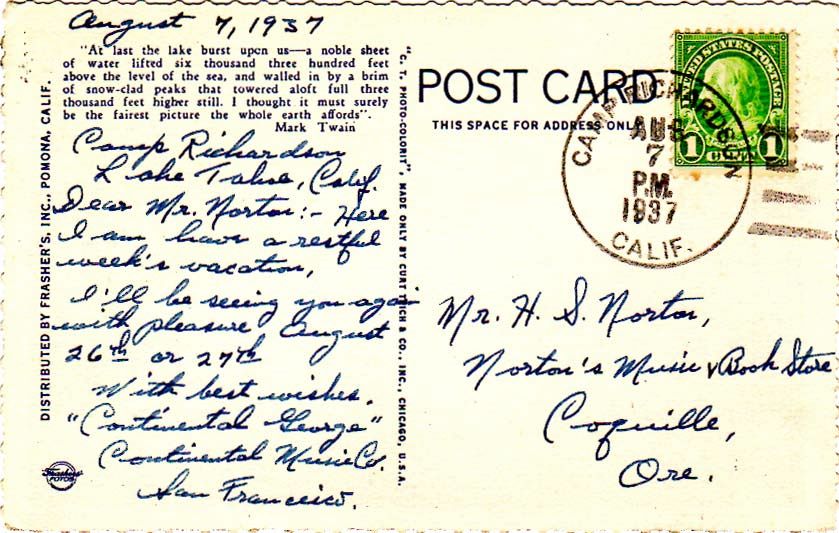 August 7, 1937
"At last the lake burst upon us—a noble sheet
of water lifted six thousand three hundred feet
above the level of the sea, and walled in by a brim
of snow-clad peaks that towered aloft full three
thousand feet higher still. I thought it must surely
be the fairest picture the whole earth affords".
Mark Twain
Camp Richardson
Lake Tahoe, Calif.
Dear Mr. Norton:- Here
I am have a restful
week's vacation,
I'll be seeing you again
with pleasure August
26th or 27th
With best wishes.
"Continental George"
Continental Music Co.
San Francisco.
DISTRIBUTED BY FRASHER'S, INC., POMONA, CALIF.
Frashers'
FOTOS
"C. T. PHOTO-COLORIT", MADE ONLY BY CURT TEICH & CO., INC., CHICAGO, U.S.A.
POST CARD
THIS SPACE FOR ADDRESS ONLY
UNITED STATES POSTAGE
1 CENT 1
CAMP RICHARDSON
AUG
7
P.M.
1937
CALIF.
Mr. H. S. Norton,
Norton's Music & Book Store
Coquille,
Ore.